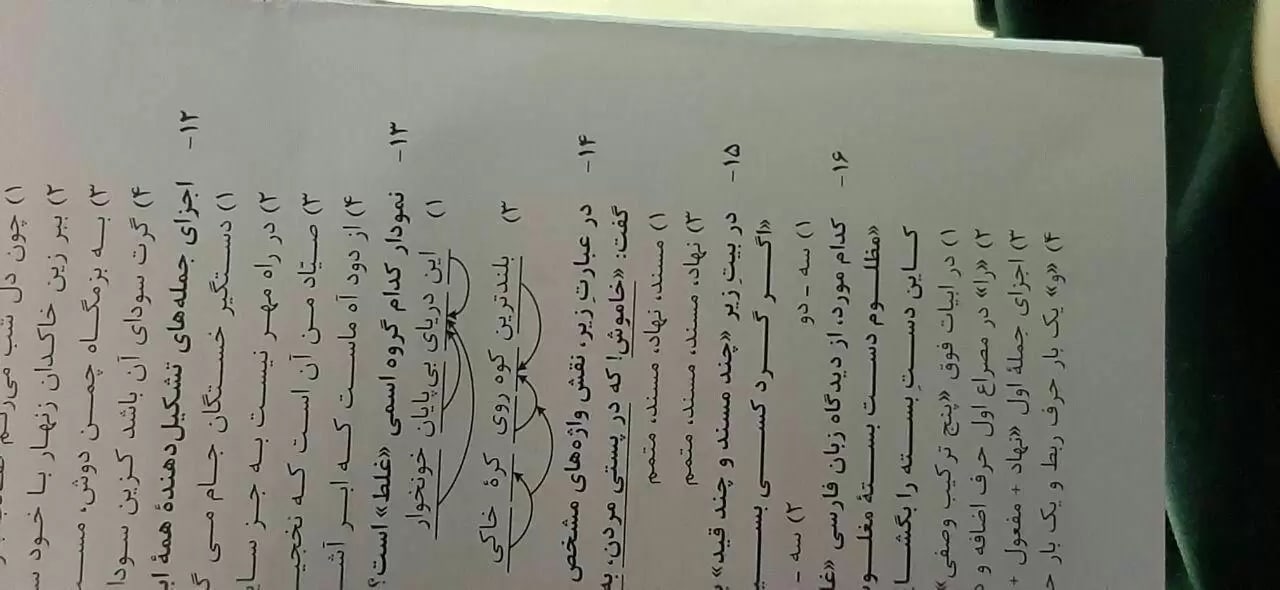 ۱) چون دل شب می‌زنم
۲) ببر زین خاکدان زنهار با خود
۳) به بزمگاه چمن دوش، مست
۴) گرت سودای آن باشد کزین سودا
۱۲- اجزای جمله‌های تشکیل‌دهندهٔ همهٔ
۱) دستگیر خستگان جام می
۲) در راه مهر نیست به جز
۳) صیّاد من آن است که نخجی
۴) از دود آه ماست که ابر
۱۳- نمودار کدام گروه اسمی «غلط» است؟
۱) این دریای بی‌پایان خونخوار
۳) بلندترین کوه روی کرهٔ خاکی
۱۴- در عبارت زیر، نقش واژه‌های مشخص
گفت: «خاموش! که در پستی مردن، به
۱) مسند، نهاد، مسند، متمم
۳) نهاد، مسند، مسند، متمم
۱۵- در بیت زیر «چند مسند و چند قید»
«اگر گرد کسی بسی
۱) سه - دو ۲) سه -
۱۶- کدام مورد، از دیدگاه زبان فارسی «غل
«مظلوم دست بستهٔ مغلو
کاین دستِ بسته را بگشا
۱) در ابیات فوق «پنج ترکیب وصفی»
۲) «را» در مصراع اول حرف اضافه و د
۳) اجزای جملهٔ اول «نهاد + مفعول +
۴) «و» یک بار حرف ربط و یک بار حـ